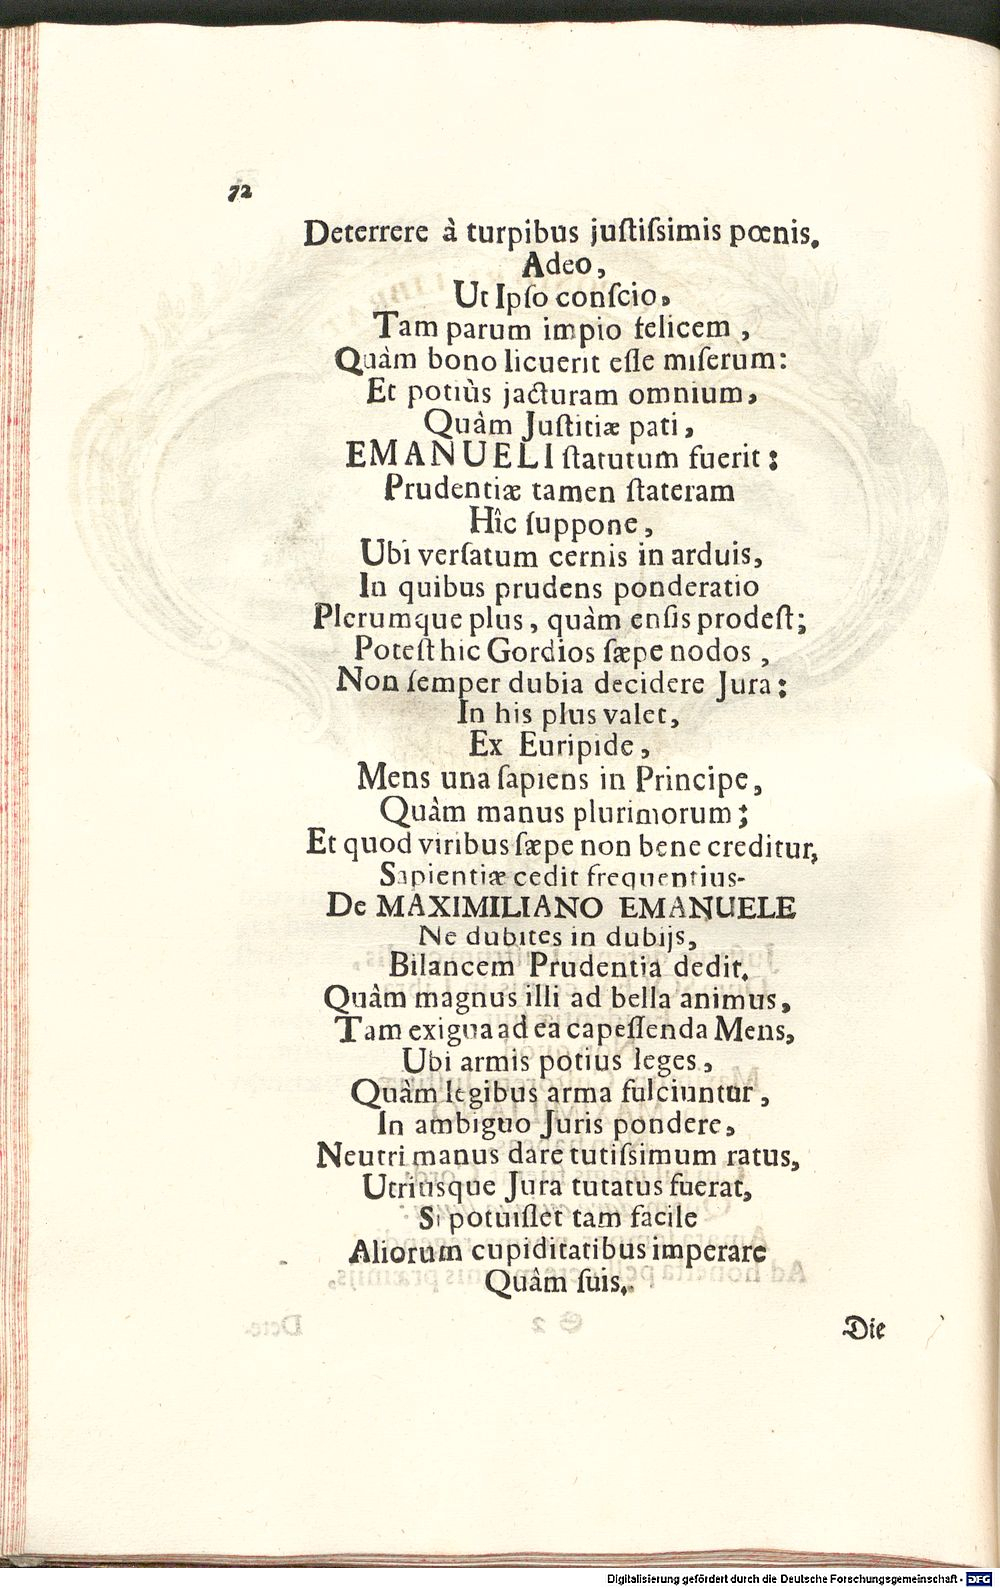 72
Deterrere à turpibus juſtiſsimis pœnis.
Adeo,
Ut Ipſo conſcio,
Tam parum impio felicem ,
Quàm bono licuerit eſſe miſerum:
Et potiùs jacturam omnium,
Quàm Juſtitiæ pati,
EMANUELI ſtatutum fuerit:
Prudentiæ tamen ſtateram
Hîc ſuppone,
Ubi verſatum cernis in arduis,
In quibus prudens ponderatio
Plerumque plus, quàm enſis prodeſt;
Poteſt hic Gordios ſæpe nodos ,
Non ſemper dubia decidere Jura:
In his plus valet,
Ex Euripide,
Mens una ſapiens in Principe,
Quàm manus plurimorum;
Et quod viribus ſæpe non bene creditur,
Sapientiæ cedit frequentius-
De MAXIMILIANO EMANUELE
Ne dubites in dubijs,
Bilancem Prudentia dedit.
Quâm magnus illi ad bella animus,
Tam exigua ad ea capeſſenda Mens,
Ubi armis potius leges,
Quàm legibus arma fulciuntur,
In ambiguo Juris pondere,
Neutri manus dare tutiſsimum ratus,
Utriusque Jura tutatus fuerat,
Si potuiſſet tam facile
Aliorum cupiditatibus imperare
Quâm ſuis.
Die
Digitalisierung gefördert durch die Deutsche Forschungsgemeinschaft - DFG